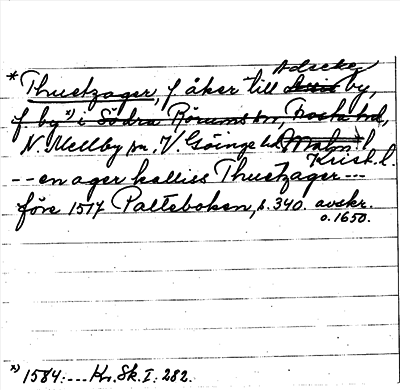 Adseke
* Thuetzager, f åker till by,
f. by *) i Södra Rörums sn, Frosta hd,
N. Mellby sn, V. Göinge hd Malm. l,
Krist. l.
-- en ager kalliss Thuetzager ---
före 1517 Palteboken, s. 340. avskr.
o. 1650.
*) 1584: --- Kr. Sk. I: 282.